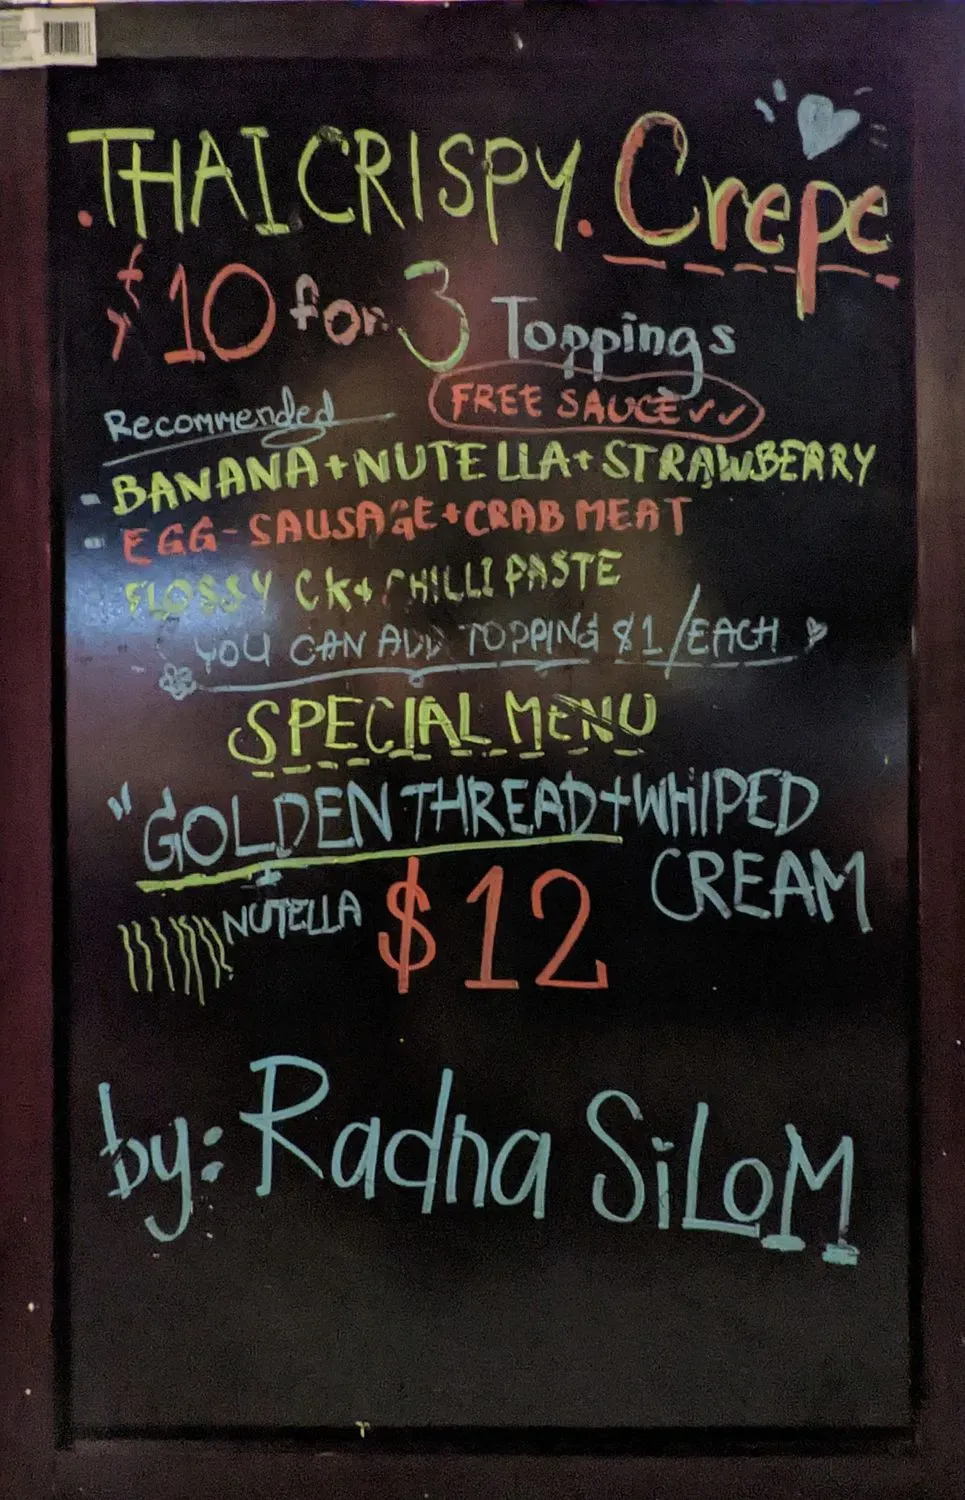 .THAI CRISPY. Crepe
$10 for 3 Toppings
Recommended FREE SAUCE ✓✓
- BANANA+NUTELLA+STRAWBERRY
- EGG-SAUSAGE+CRAB MEAT
FLOSSY CK+CHILLI PASTE
YOU CAN ADD TOPPING $1/EACH
SPECIAL MENU
"GOLDEN THREAD+WHIPED
CREAM
+
NUTELLA $12
by: Radna SiLOM